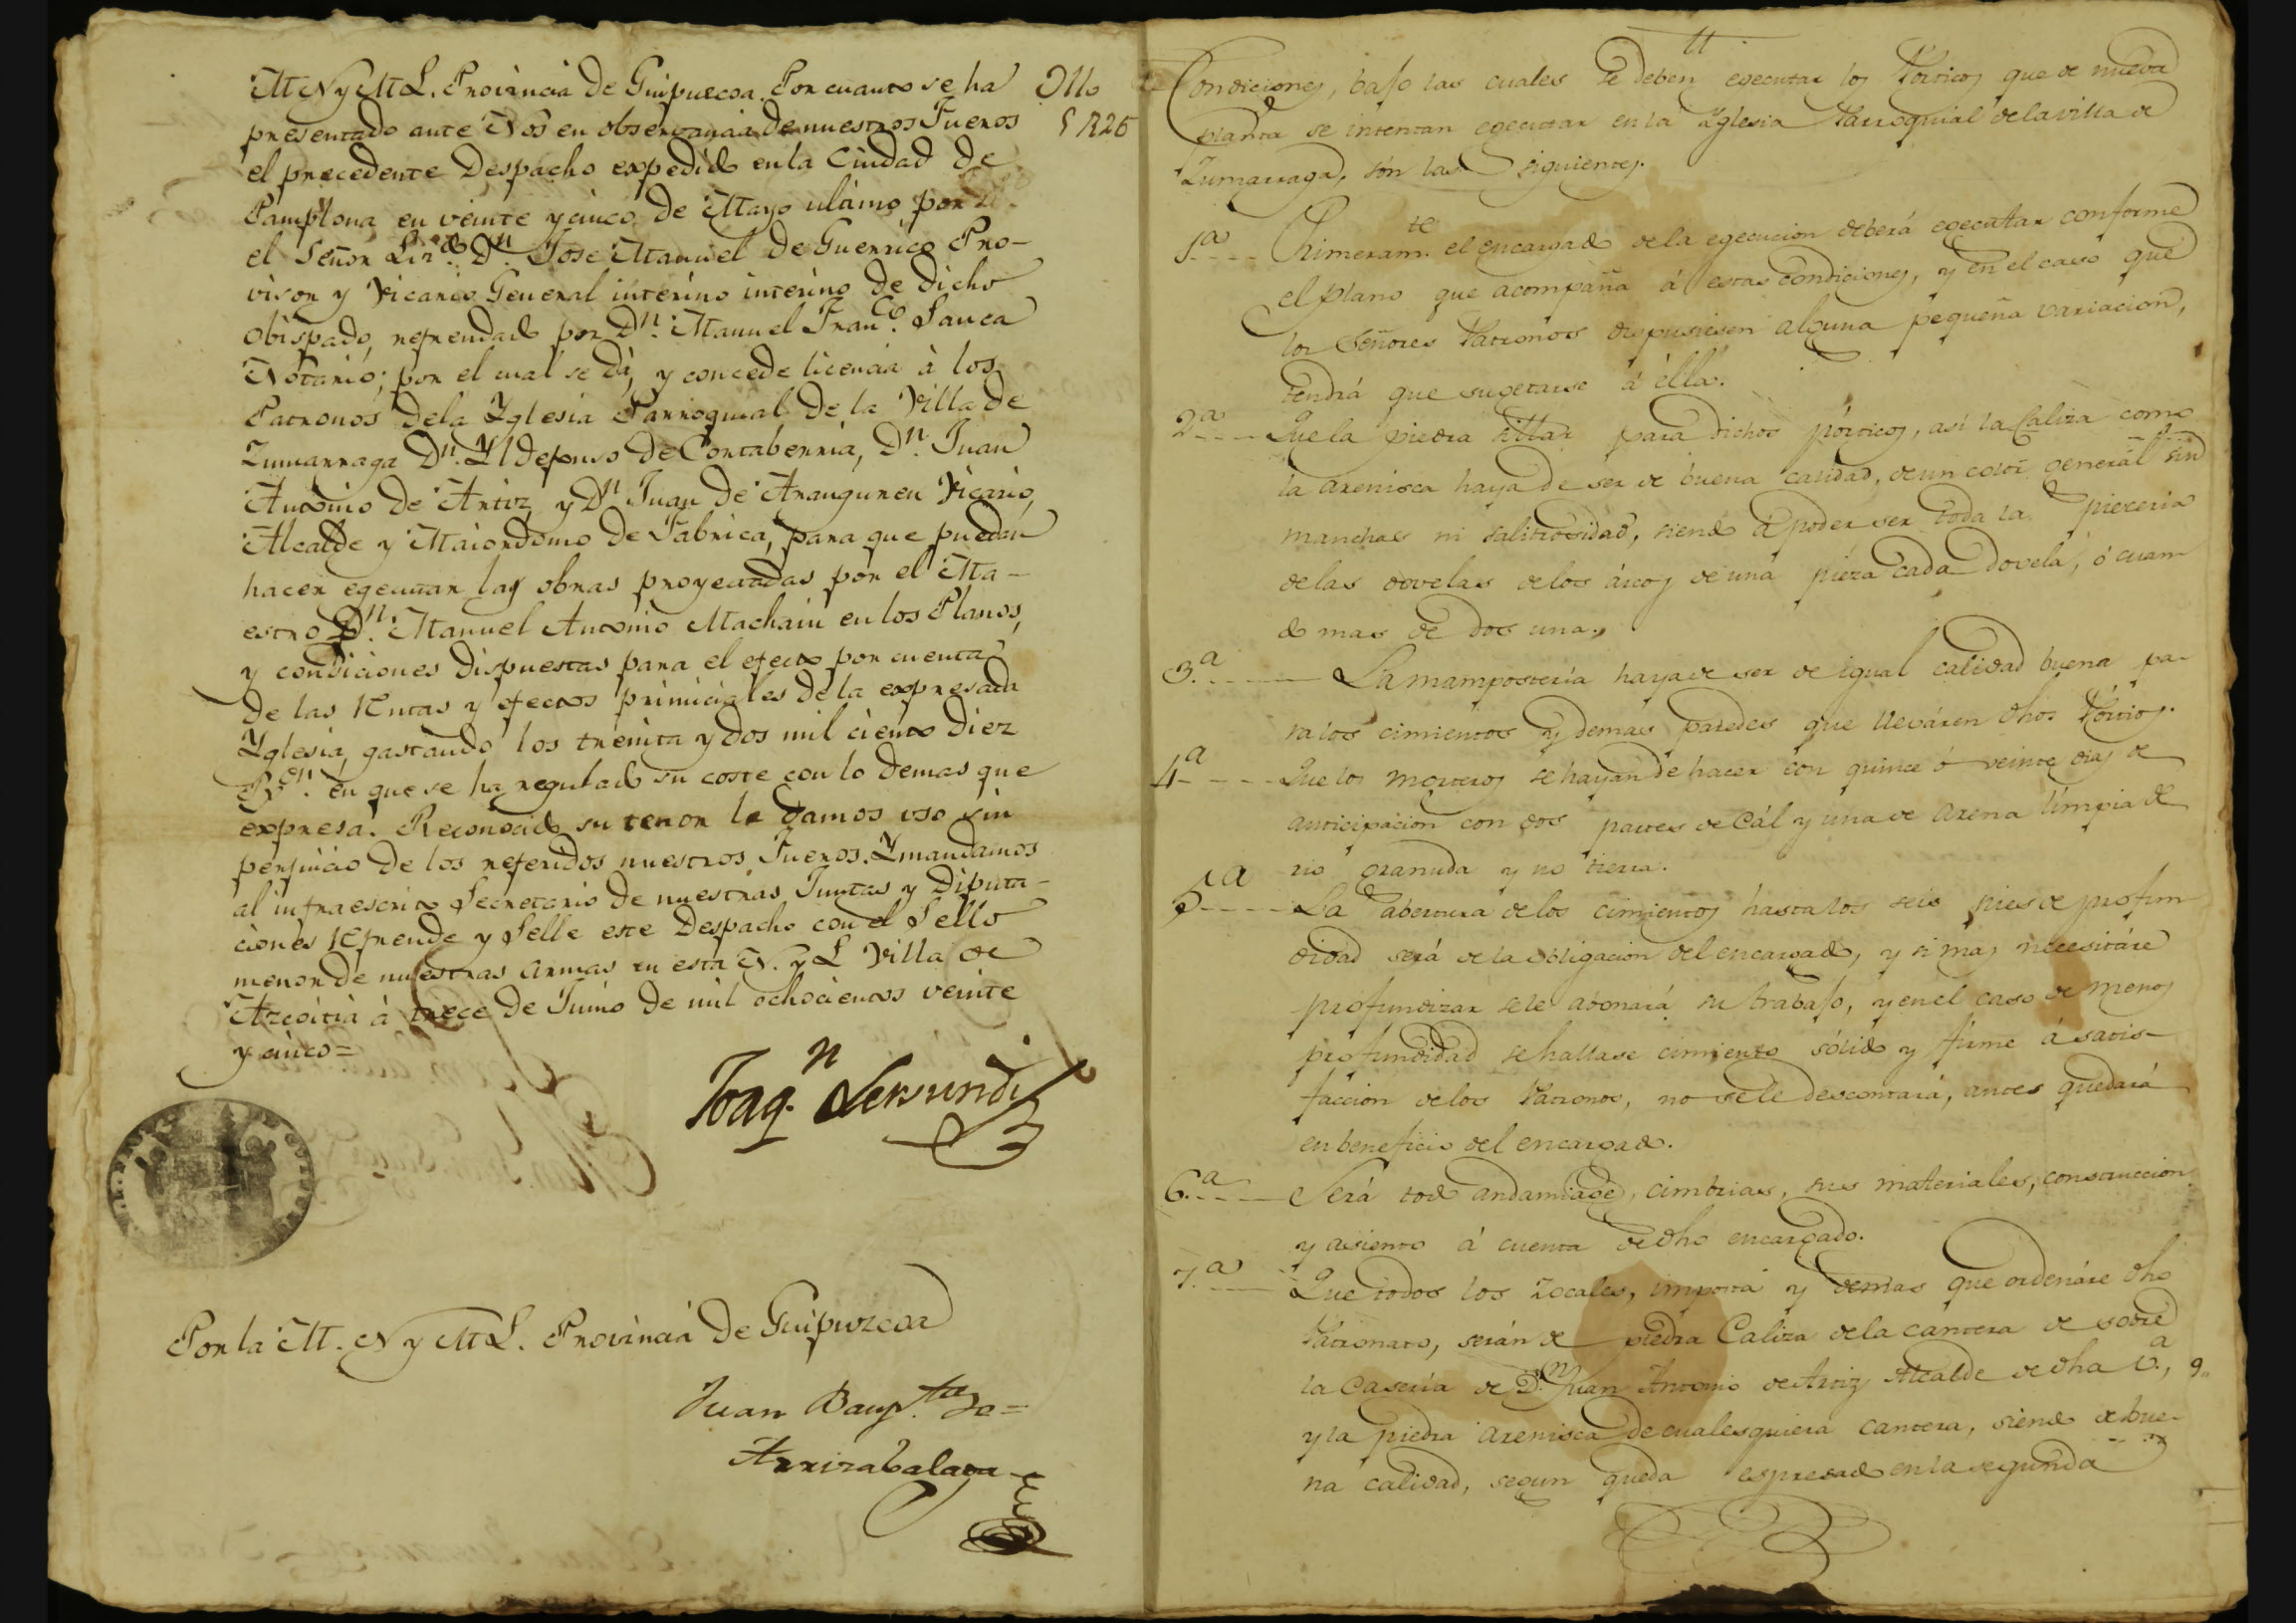 M N y M L. Provincia de Guipuzcoa. Por cuanto se ha
presentado ante Nos en observancia de nuestros Fueros
el precedente Despacho expedido en la Ciudad de
Pamplona en veinte y cinco de Mayo ultimo por
el Señor Lizdo. Dn Jose Manuel de Guerrico Pro-
visor y Vicario General interino interino de dicho
Obispado, refrendado por Dn. Manuel Franco. Sauca
Notario; por el cual se dà, y concede licencia à los
Patronos dela Yglesia Parroquial de la Villa de
Zumarraga Dn. Yldefonso de Contaberria, Dn. Juan
Antonio de Artiz, y Dn Juan de Aranguren Vicario,
Alcalde y Maiordomo de Fabrica, para que puedan
hacer egecutar las obras proyectadas por el Ma-
estro Dn. Manuel Antonio Machain en los Planos,
y condiciones dispuestas para el efecto por cuenta
de las Rentas y efectos primiciales de la expresada
Yglesia, gastando los treinta y dos mil ciento diez
Rs.on en que se ha regulado su coste con lo demas que
expresa. Reconocido su tenor le damos uso sin
perjuicio de los referidos nuestros Fueros. Y mandamos
al infraescrito Secretario de nuestras Juntas y Diputa-
ciones Refrende y Selle este Despacho con el Sello
menor de nuestras armas en esta N. y L Villa de
Azcoitia à trece de Junio de mil ochocientos veinte
y cinco=
Joaqn. Lersundi
Por la M. N y M L. Provincia de Guipuzcoa
Juan Baupta. de=
Arrizabalaga
Condiciones, bajo las cuales se deben egecutar los Pórticos que de nueva
planta se intentan egecutar en la Yglesia Parroquial de la villa de
Zumarraga, són las siguientes.
1a Primeramte. el encargado de la egecucion deberá egecutar conforme
el plano que acompaña á estas condiciones, y en el caso que
los Señores Patronos dispusiesen alguna pequeña variacion,
tendrá que sugetarse á élla.
2a Que la piedra sillar para dichos pórticos, así la Caliza como
la arenisca haya de ser de buena calidad, de un color general sin
manchas ni salitrosidad, siendo á poder ser toda la piecería
de las dovelas de los árcos de una pieza cada dovela, ó cuan-
do mas de dos una.
3.a La mampostería haya de ser de igual calidad buena pa-
ra los cimientos y demas paredes que lleváren dhos Pórticos.
4a Que los morteros se hayan de hacer con quince ó veinte dias de
anticipacion con dos partes de Cál y una de arena limpia de
rio granuda y no tierra.
5a La abertura de los cimientos hasta los seis pies de profun
didad será de la obligacion del encargado, y si mas necesitáre
profundizar se le abonará su trabajo, y en el caso de menos
profundidad se hallase cimiento sólido y firme á satis-
faccion de los Patronos, no se le descontará, antes quedará
en beneficio del encargado.
6.a Será todo andamiage, cimbrias, sus materiales, construccion
y asiento á cuenta de dho encargado.
7.a Que todos los zocales, imposta y demas que ordenáre dho
Patronato, serán de piedra Caliza de la cantera de sobre
la Casería de Dn. Juan Antonio de Artiz Alcalde de dha Va.,
y la piedra arenisca de cualesquiera cantera, siendo de bue-
na calidad, segun queda espresado en la segunda